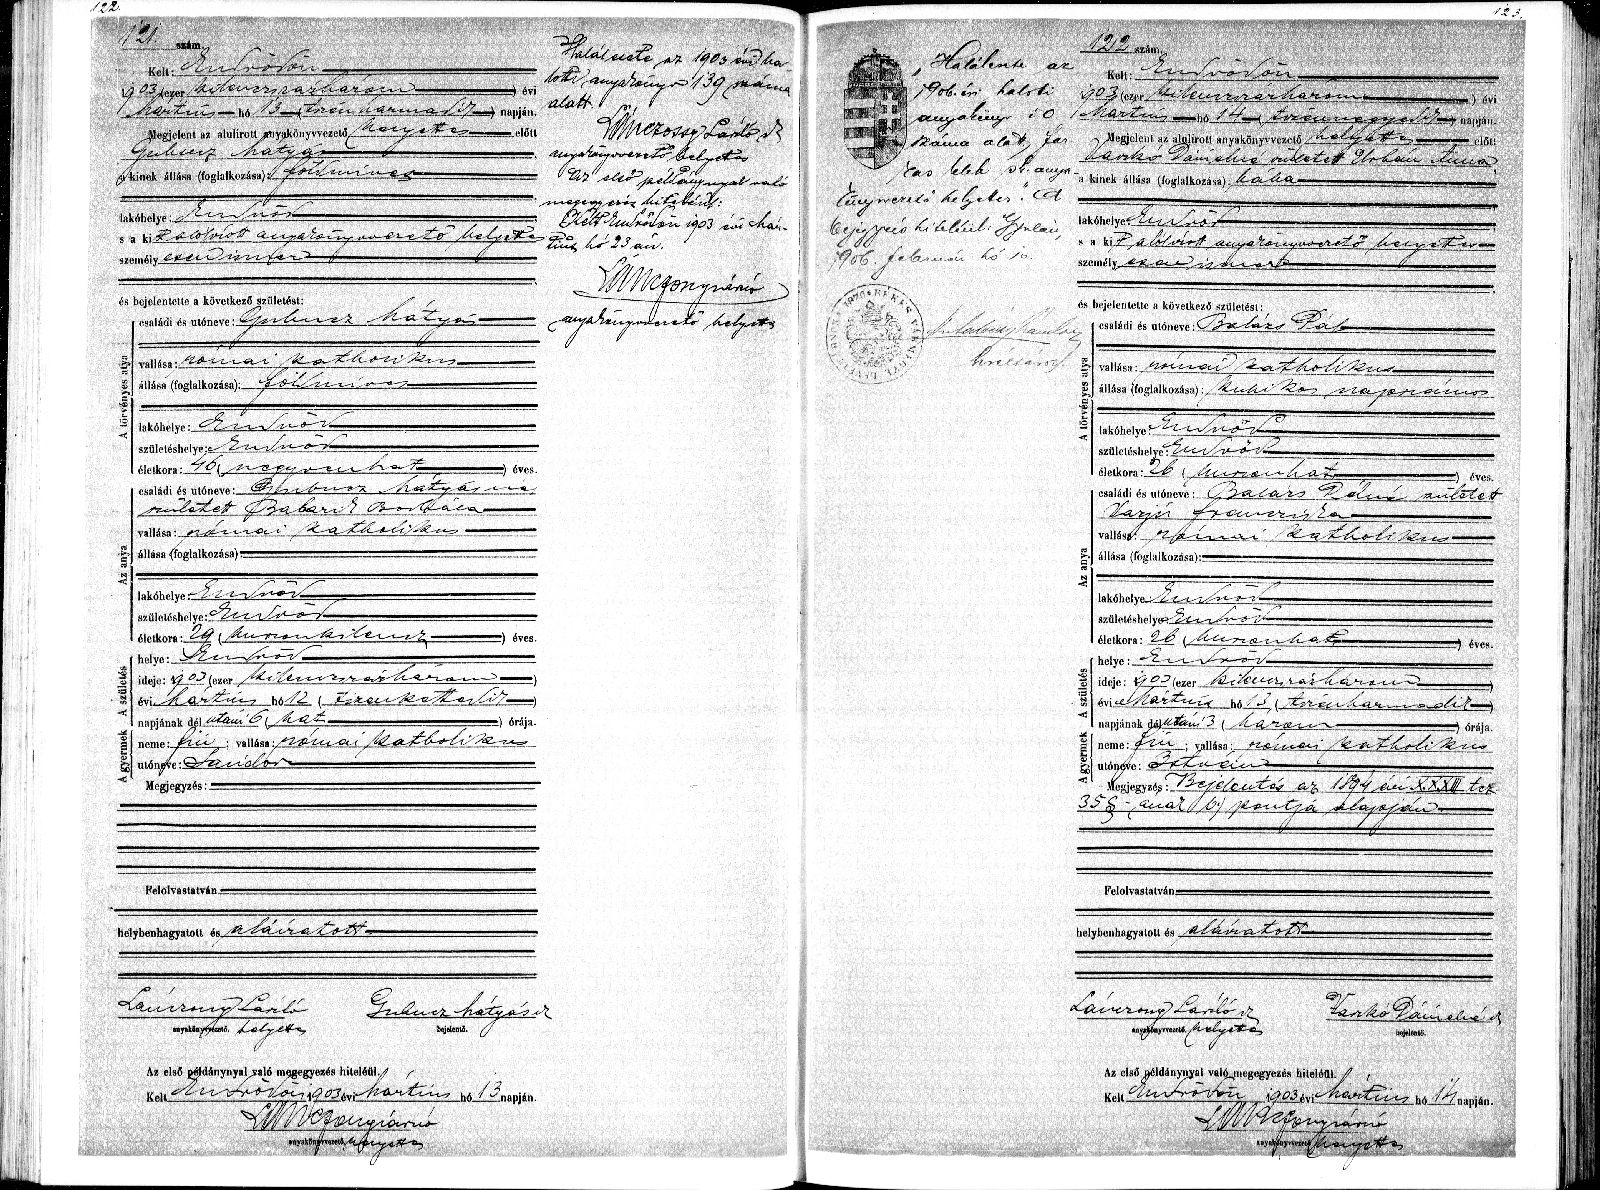 122.
121. szám.
Kelt: Endrődön
1903 (ezer kilenczszázhárom) évi
Mártius hó 13 (tizenharmadik) napján.
Megjelent az alulirott anyakönyvvezető helyettes előtt
Gubucz Mátyás
a kinek állása (foglalkozása): földmíves
lakóhelye: Endrőd
s a kit alólírott anyakönyvvezető helyettes
személyesen ismer
és bejelentette a következő születést:
A törvényes atya
családi és utóneve: Gubucz Mátyás
vallása: római katholikus
állása (foglalkozása): földmíves
lakóhelye: Endrőd
születéshelye: Endrőd
életkora: 46 (negyvenhat) éves.
Az anya
családi és utóneve: Gubucz Mátyásné
született Borbála
vallása: római katholikus
állása (foglalkozása):
lakóhelye: Endrőd
születéshelye: Endrőd
életkora: 29 (huszonkilencz) éves.
A születés
helye: Endrőd
ideje: 1903 (ezer kilenczszázhárom)
évi Mártius hó 12 (tizenkettedik)
napjának délutáni 6 (hat) órája.
A gyermek
neme: fiú; vallása: római katholikus
utóneve: Sándor
Megjegyzés:
Felolvastatván
helybenhagyatott és aláíratott
László Gubucz Mátyás
anyakönyvvezető helyettes bejelentő.
Az első példánynyal való megegyezés hiteléül.
Kelt Endrődön 1903 évi Mártius hó 13 napján.
anyakönyvvezető helyettes
Halálesete az 1903 évi ha-
lotti anyakönyv 139 száma
alatt
László
anyakönyvvezető helyettes
Az első példánynyal való
megegyezés hiteléül:
Kelt Endrődön 1903 évi Már-
tius hó 23 án.
anyakönyvvezető helyettes
123.
"Halálesete az
1906. évi haloti
anyakönyv 10
száma alatt,
anya-
könyvvezető helyettes."
bejegyzés hiteléül: Gyulán,
1906. február hó 10.
122 szám.
Kelt: Endrődön
1903 (ezer kilenczszázhárom) évi
Mártius hó 14 (tizennegyedik) napján.
Megjelent az alulirott anyakönyvvezető helyettes előtt
Dánielné született Urbán Anna
a kinek állása (foglalkozása): bába
lakóhelye: Endrőd
s a kit alólírott anyakönyvvezető helyettes
személyesen ismer
és bejelentette a következő születést:
A törvényes atya
családi és utóneve: Balázs Pál
vallása: római katholikus
állása (foglalkozása): kubikos napszámos
lakóhelye: Endrőd
születéshelye: Endrőd
életkora: 26 (huszonhat) éves.
Az anya
családi és utóneve: Balázs Pálné született
Varjú Francziska
vallása: római katholikus
állása (foglalkozása):
lakóhelye: Endrőd
születéshelye: Endrőd
életkora: 26 (huszonhat) éves.
A születés
helye: Endrőd
ideje: 1903 (ezer kilenczszázhárom)
évi Mártius hó 13 (tizenharmadik)
napjának délutáni 3 (három) órája.
A gyermek
neme: fiú; vallása: római katholikus
utóneve: István
Megjegyzés: Bejelentés az 1894 évi XXXIII tcz
35 §-ának b.) pontja alapján
Felolvastatván
helybenhagyatott és aláíratott
László Dánielné
anyakönyvvezető helyettes bejelentő.
Az első példánynyal való megegyezés hiteléül.
Kelt Endrődön 1903 évi Mártius hó 14 napján.
anyakönyvvezető helyettes